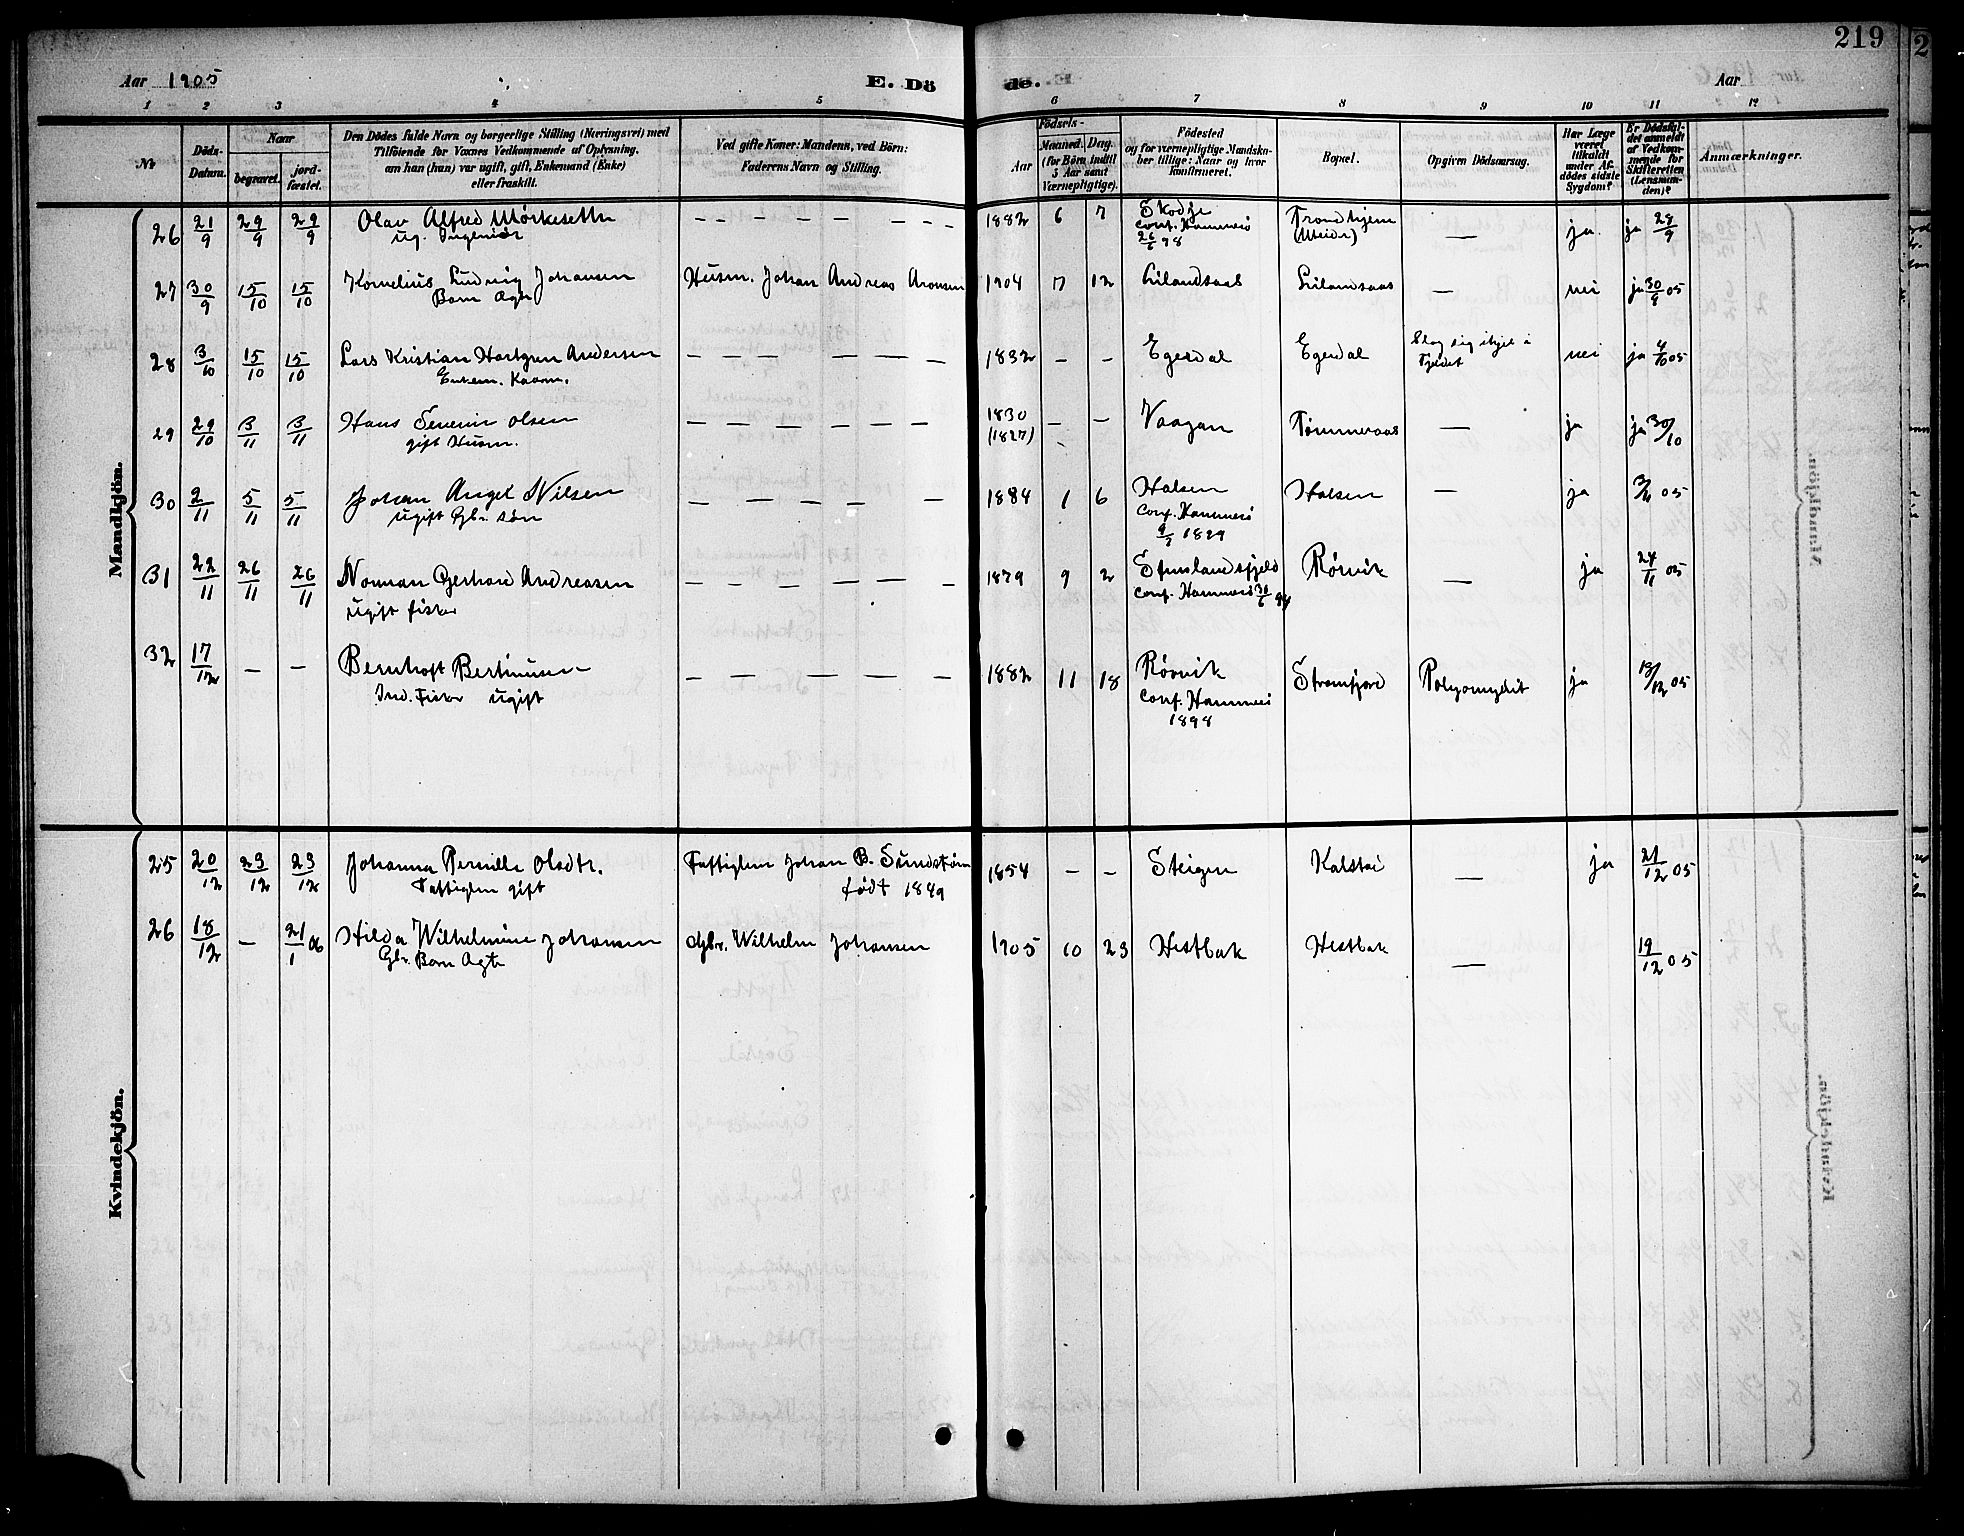 219
Aar 1905
E. Dö
de.
Aar
1 2 3 4 5 6 7 8 9 10 11 12
Nr
Döds-Datum.
Naar
begravet.
jord-fæstet.
Den Dödes fulde Navn og borgerlige Stilling (Næringsvei) med
Tilföiende for Voxnes Vedkommende af Oplysning,
om han (hun) var ugift, gift, Enkemand (Enke)
eller fraskilt.
Ved gifte Koner: Mandens, ved Börn:
Faderens Navn og Stilling.
Födsels-
Aar
Maaned.
Dag.
(for Börn indtil
5 Aar samt
Værnepligtige).
Födested
og for værnepligtige Mandska-
ber tillige: Naar og hvor
konfirmeret.
Bopæl.
Opgiven Dödsaarsag.
Har Læge
været
tilkaldt
under Af-
dödes sidste
Sygdom?
Er Dödsfal-
det anmeldt
af Vedkom-
mende for
Skifteretten
(Lensman-
den)?
Anmærkninger.
Mandkjön.
26 21/9 29/9 29/9 Olav Alfred Mørkeseth — — — — — — 1882 6 7 Skodje Trondhjem — ja ja 28/9
ug. Ingeniør conf. Hammerø
26/6 98
27 30/9 15/10 15/10 Kornelius Ludvig Johansen Husm. Johan Andreas Aronsen 1904 7 12 Lilandsaas Lilandsaas — nei ja 30/9 05
Barn Ægte
28 3/10 15/10 15/10 Lars Kristian Hartgen Andersen — — — — — — 1832 — — Egerdal Egerdal Slog sig ihjel i nei ja 4/10 05
Enkem. Kaarm. Fjeldet
29 29/10 3/11 3/11 Hans Severin Olsen — — — — — — 1830 — — Vaagan Tømmeraas — ja ja 30/10
gift Husm. (1827)
30 2/11 5/11 5/11 Johan Angel Nilsen — — — — — 1884 1 6 Halsen Halsen — ja 3/11 05
ugift Gbr. søn conf. Hammerø
1899
31 22/11 26/11 26/11 Norman Gerhard Andreasen — — — — — — 1879 9 2 Stenslandsfjeld Rörvik — ja 24/11 05
ugift fisker conf. Hammerø 30/6 94
32 17/12 — — Bernhoft Bertinusen — — — — — 1882 11 18 Rörvik Strømfjord Polyomyelit ja 19/12 05
Ind. Fisker ugift conf. Hammerø
1898
Kvindekjön.
25 20/12 23/12 23/12 Johanna Pernille Olsdtr. Fattiglem Johan B. Sundstrøm 1854 — — Steigen Kalstø — ja 21/12 05
Fattiglem gift født 1849
26 18/12 — 21/1 06 Hilda Wilhelmine Johansen Gbr. Wilhelm Johansen 1905 10 23 Hestbak Hestbak — 19/12 05
Gbr. Barn Ægte